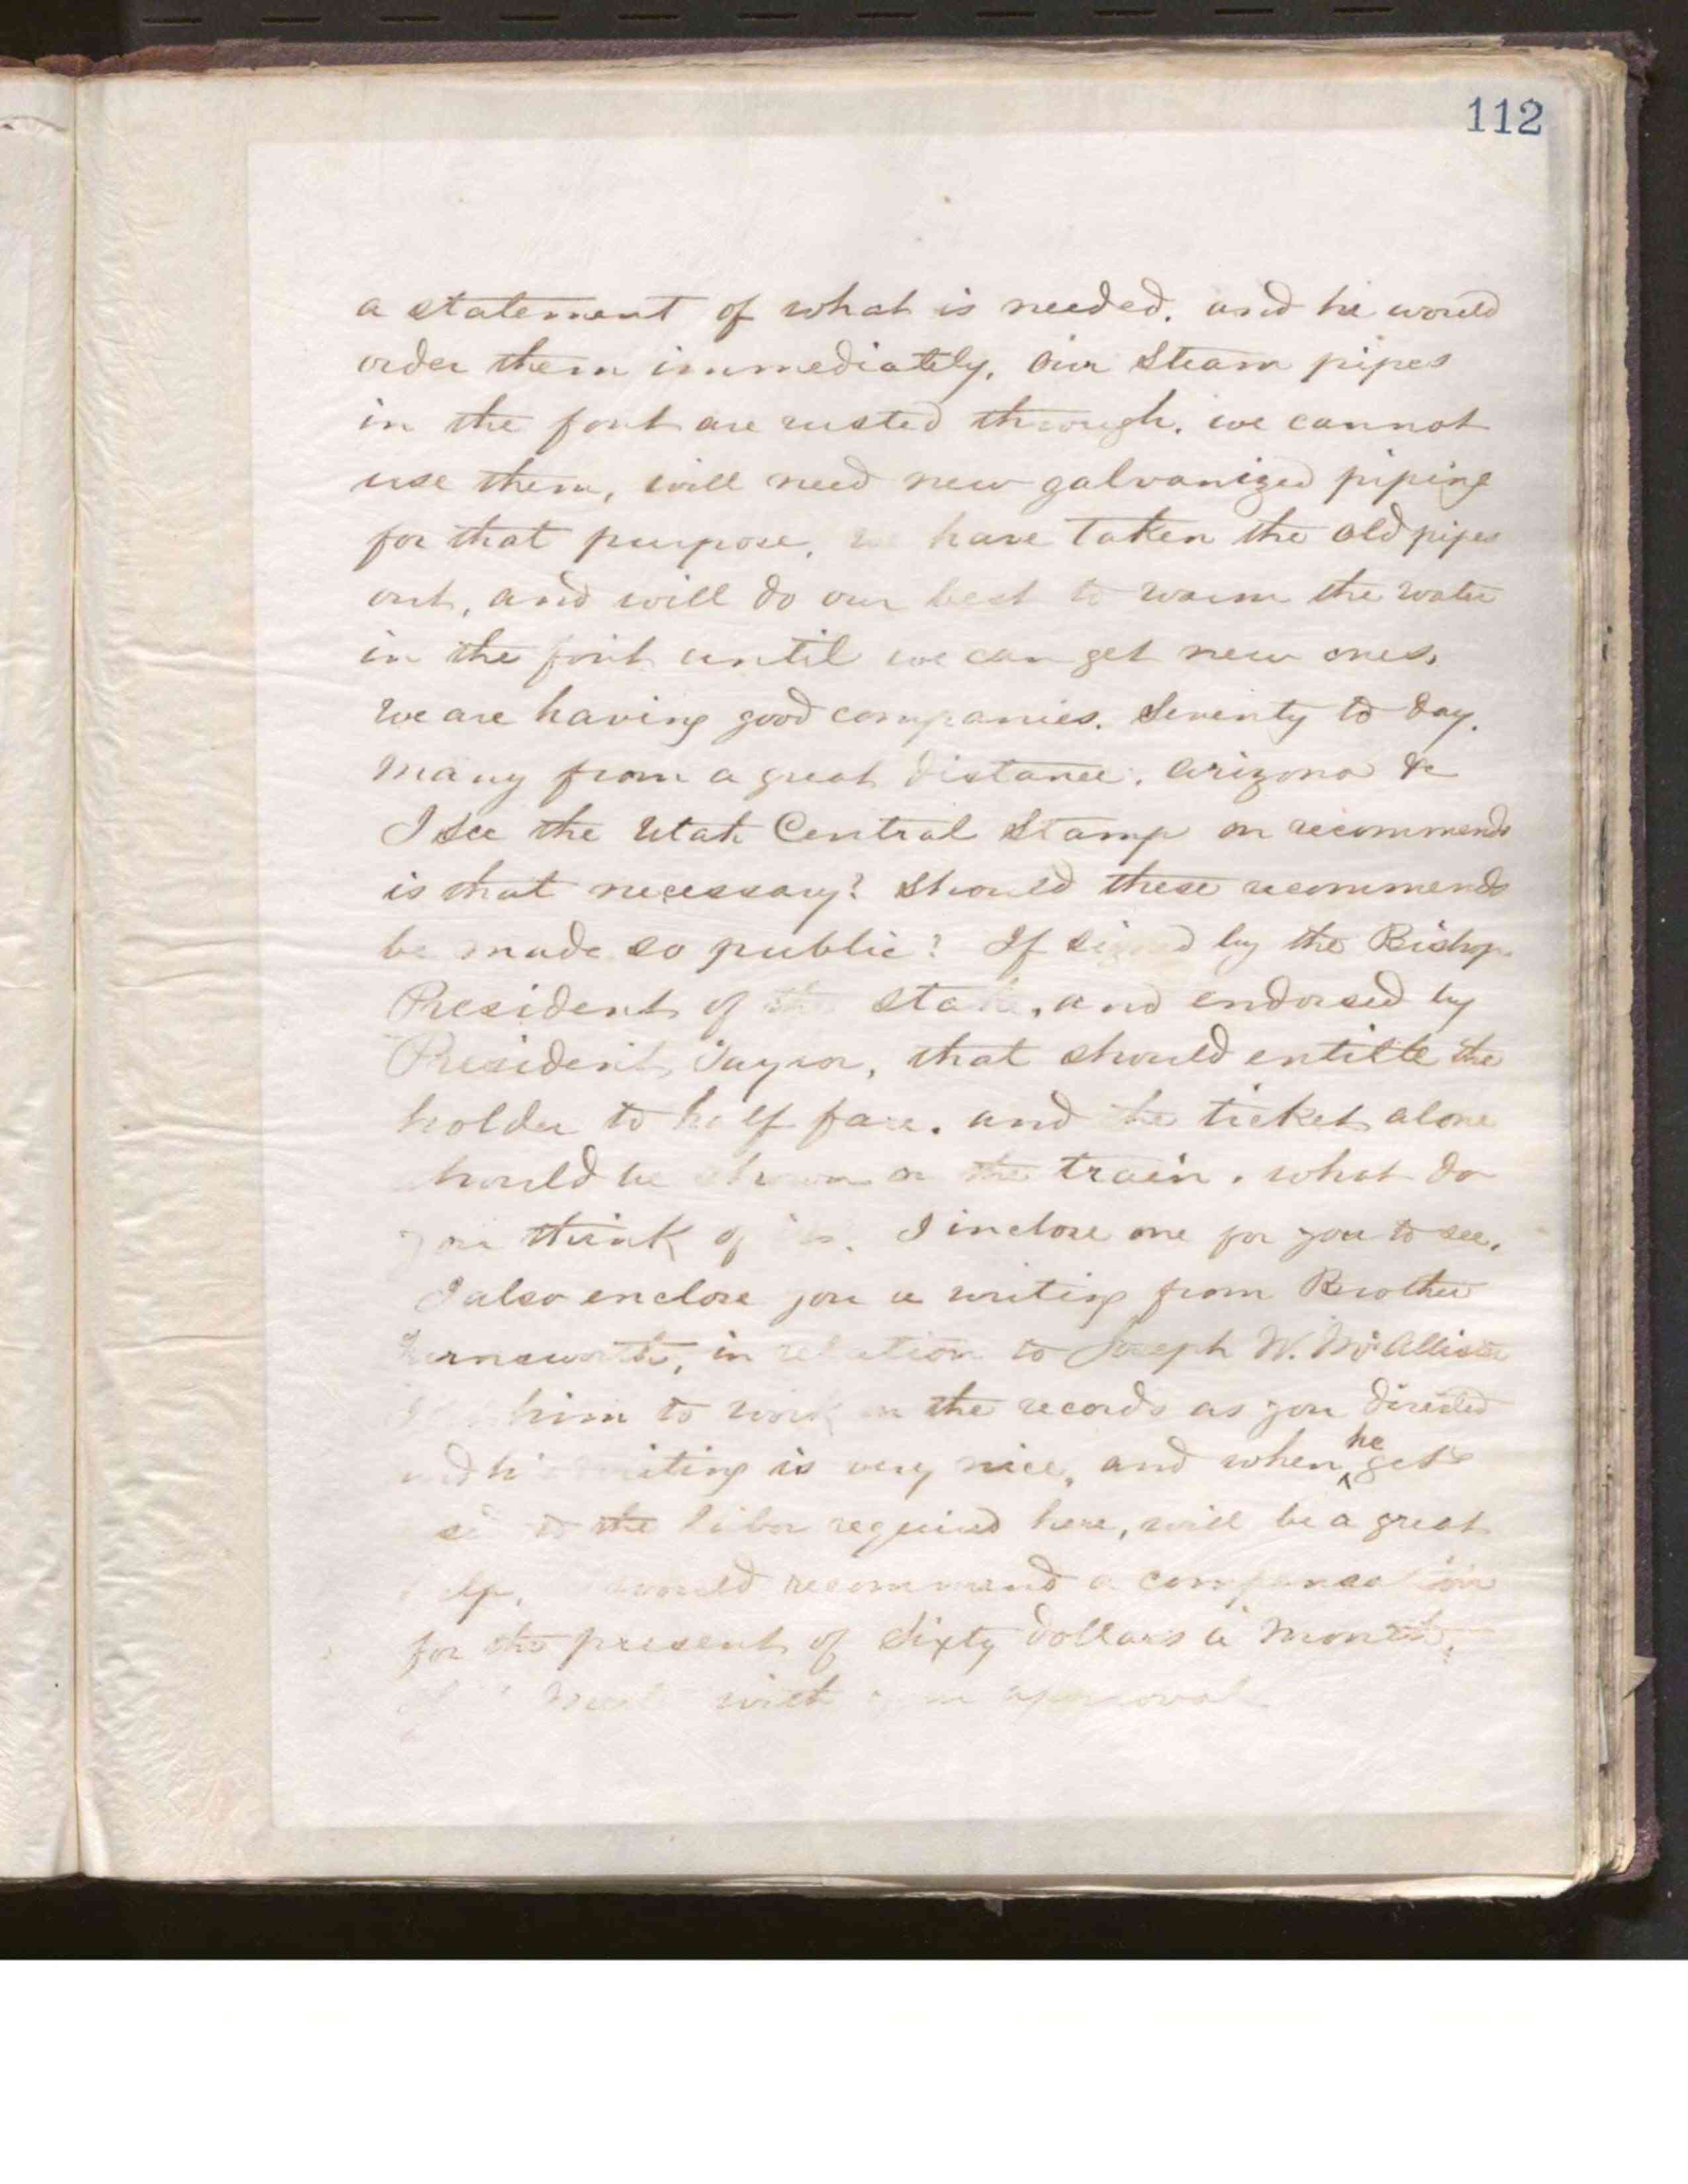 112
a statement of what is needed. and he would
order them immediately. Our Steam pipes
in the font are rusted through. we cannot
use them, will need new galvanized piping
for that purpose, we have taken the old pipes
out, and will do our best to warm the water
in the font until we can get new ones.
We are having good companies. Seventy to day.
Many from a great distance. Arizona &c
I see the Utah Central Stamp on recommends
is that necessary? Should these recommends
be made so public? If signed by the Bishop
President of the Stake, and endorsed by
President Taylor, that should entitle the
holder to half fare. and the ticket alone
should be shown on the train. what do
you think of . I inclose one for you to see.
I also enclose you a writing from Brother
in relation to Joseph W. McAllister
him to work on the records as you directed
and writing is very nice, and when he gets
to the labor required here, will be a great
help. would recommend a compensation
for the present of Sixty dollars a month.
with approval